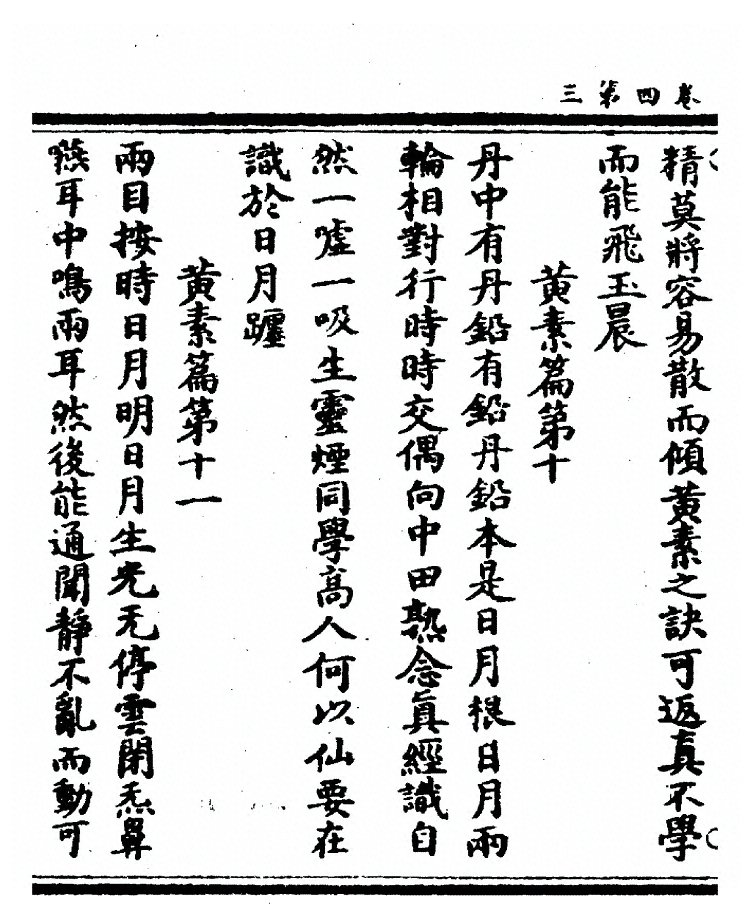 卷四第三
精莫將容易散而傾黃素之訣可返真不學
而能飛玉晨
黃素篇第十
丹中有丹鉛有鉛丹鉛本是日月根日月兩
輪相對行時時交偶向中田熟念真經識自
然一噓一吸生靈煙同學高人何以仙要在
識於日月躔
黃素篇第十一
兩目按時日月明日月生光无停雲閉炁鼻
嚥耳中鳴兩耳然後能通聞靜不亂而動可